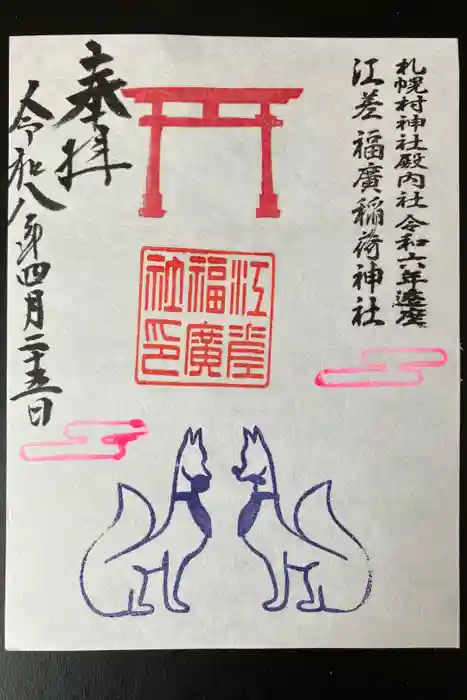 札幌村神社殿内社 令和六年遷座
江差 福廣稲荷神社
江差
福廣
社印
奉拝
令和八年四月二十五日